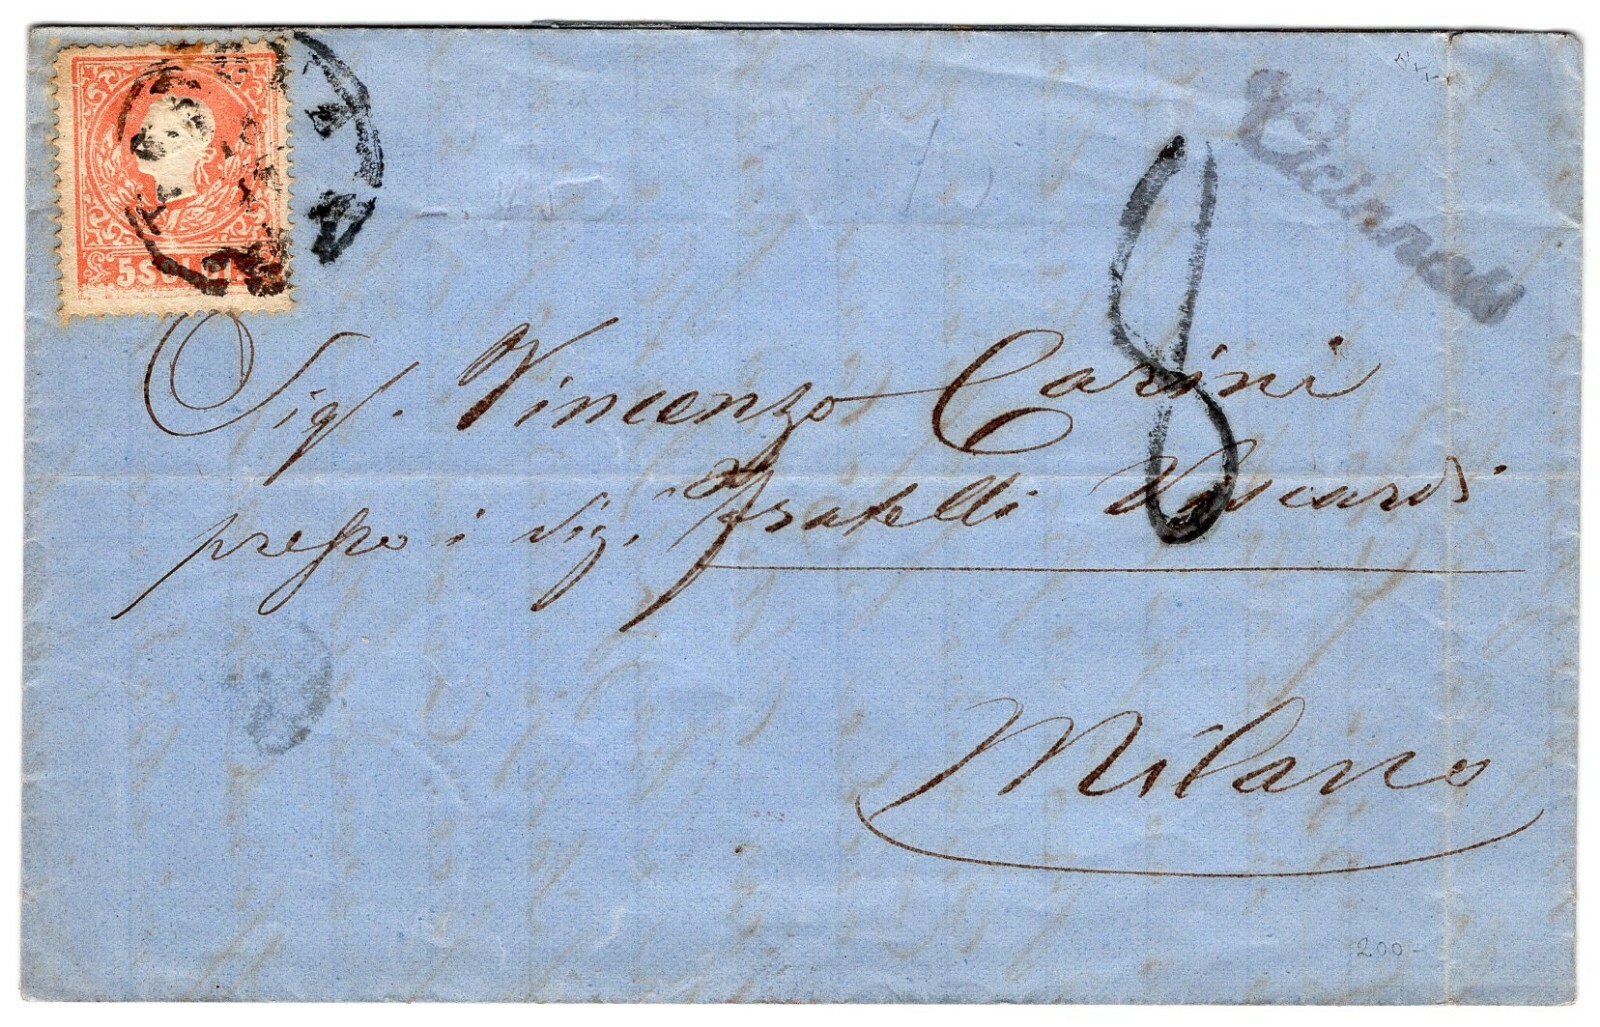 5 SOLDI
8
Sigr. Vincenzo Carini
presso i Sig. Fratelli Viscardi
Milano
200-